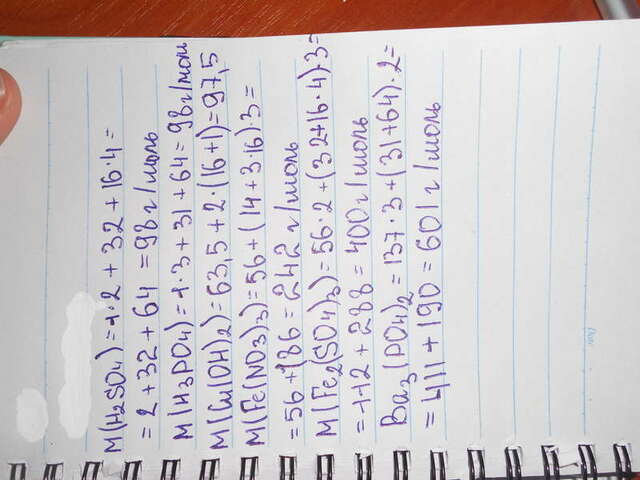 M(H₂SO₄)=1·2+32+16·4=
=2+32+64=98г/моль
M(H₃PO₄)=1·3+31+64=98г/моль
M(Cu(OH)₂)=63,5+2·(16+1)=97,5
M(Fe(NO₃)₃)=56+(14+3·16)3=
=56+186=242г/моль
M(Fe₂(SO₄)₃)=56·2+(32+16·4)·3=
=112+288=400г/моль
Ba₃(PO₄)₂=137·3+(31+64)·2=
=411+190=601г/моль